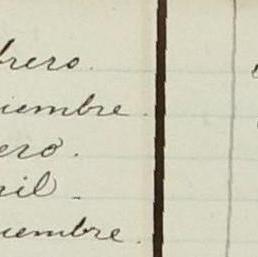 brero.
iembre.
ero.
ril
iembre.